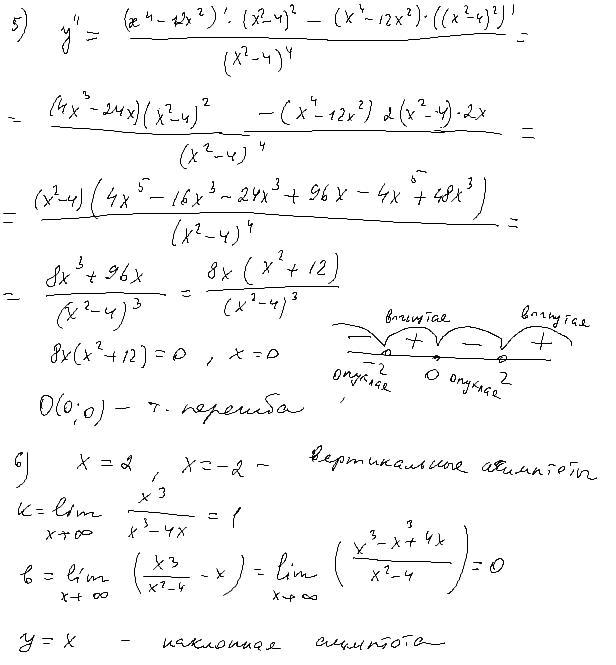 5) y'' = ((x⁴-12x²)'·(x²-4)² - (x⁴-12x²)·((x²-4)²)')/(x²-4)⁴ =
= ((4x³-24x)(x²-4)² - (x⁴-12x²) 2(x²-4)·2x)/(x²-4)⁴ =
= ((x²-4)(4x⁵-16x³-24x³+96x-4x⁵+48x³))/(x²-4)⁴ =
= (8x³+96x)/(x²-4)³ = (8x(x²+12))/(x²-4)³
8x(x²+12)=0 , x=0
вгнутае вгнутае
- + - +
-2 0 2
опуклае опуклае
O(0;0) - т. перегиба
6) x=2 , x=-2 - вертикальные асимптоты
k=lim x→∞ x³/(x³-4x) = 1
b=lim x→∞ (x3/(x²-4) - x) = lim x→∞ ((x³-x³+4x)/(x²-4)) = 0
y=x - наклонная асимптота